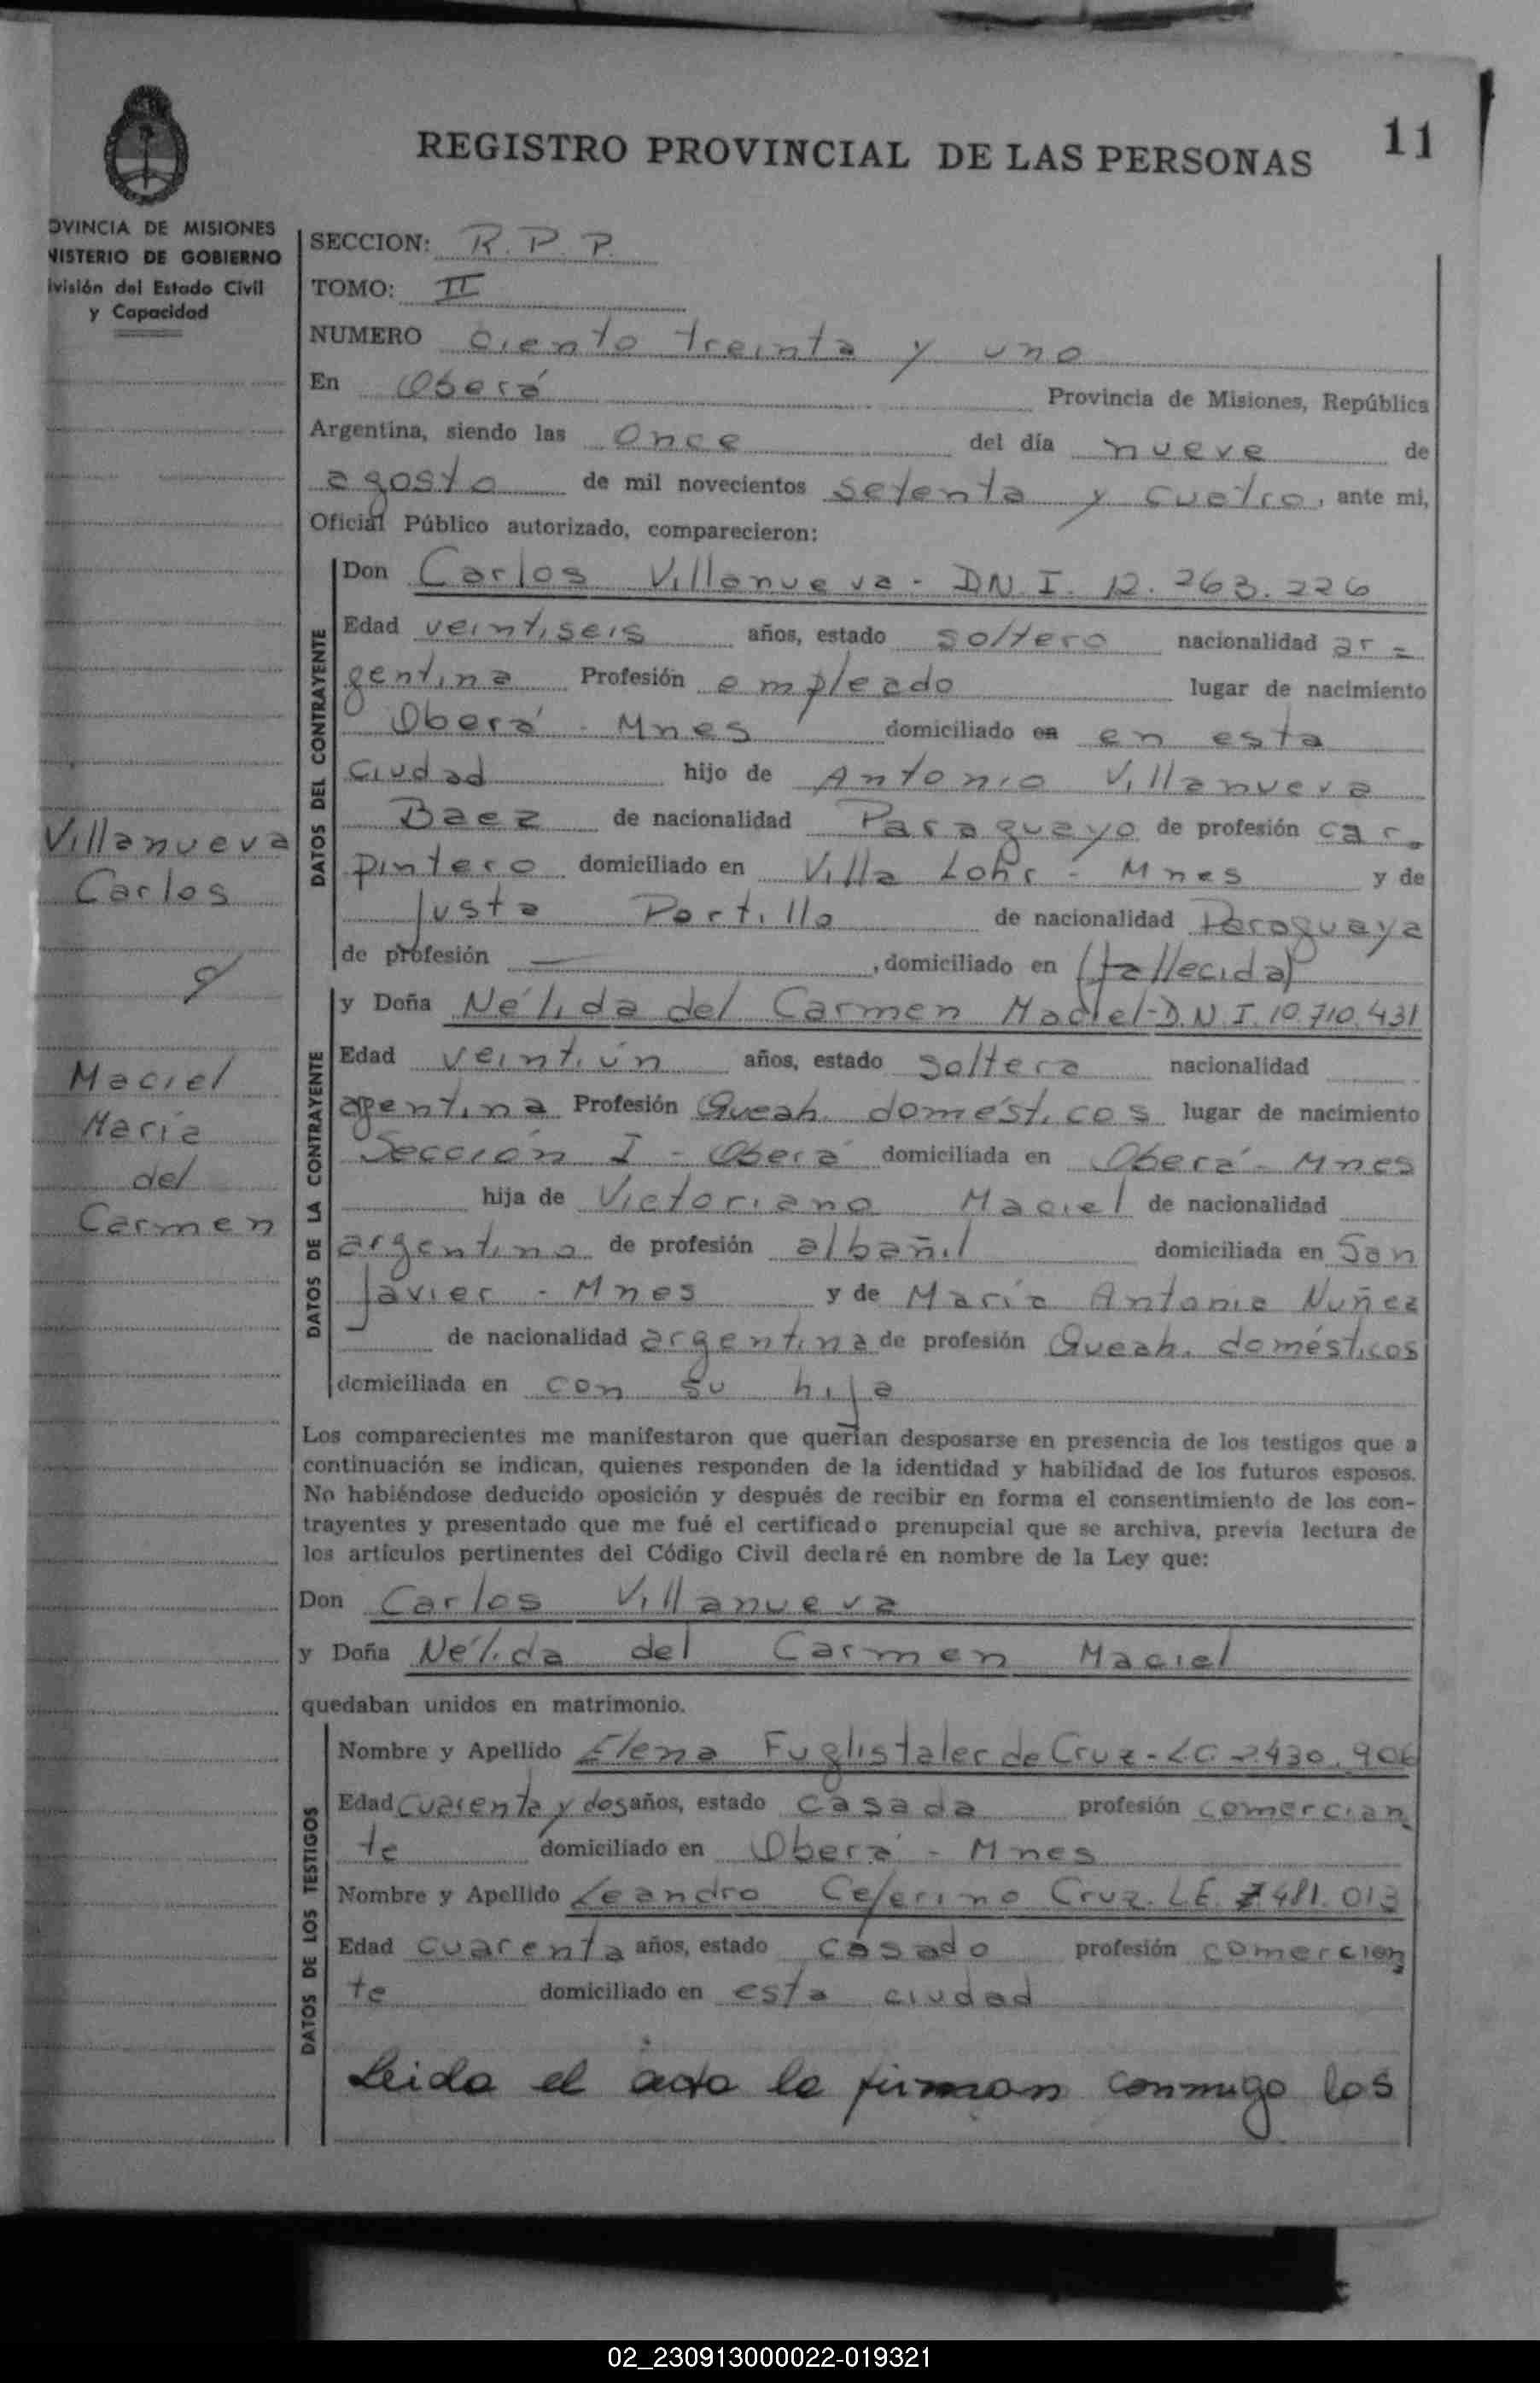 REGISTRO PROVINCIAL DE LAS PERSONAS
11
OVINCIA DE MISIONES
NISTERIO DE GOBIERNO
ivisión del Estado Civil
y Capacidad
SECCION: R. P. P.
TOMO: II
NUMERO Ciento treinta y uno
En Oberá Provincia de Misiones, República
Argentina, siendo las Once del día nueve de
agosto de mil novecientos setenta y cuatro, ante mi,
Oficial Público autorizado, comparecieron:
DATOS DEL CONTRAYENTE
Don Carlos Villanueva - DN. I. 12. 263. 226
Edad veintiseis años, estado soltero nacionalidad ar =
gentina Profesión empleado lugar de nacimiento
Oberá - Mnes domiciliado en en esta
ciudad hijo de Antonio Villanueva
Baez de nacionalidad Paraguayo de profesión car-
pintero domiciliado en Villa Lohr - Mnes y de
Justa Portillo de nacionalidad Paraguaya
de profesión —, domiciliado en (fallecida)
Villanueva
Carlos
y
Maciel
María
del
Carmen
DATOS DE LA CONTRAYENTE
y Doña Nélida del Carmen Maciel-D.N.I. 10.710.431
Edad veintiún años, estado soltera nacionalidad
agentina Profesión Queah. domésticos lugar de nacimiento
Sección I - Oberá domiciliada en Oberá - Mnes
hija de Victoriano Maciel de nacionalidad
argentino de profesión albañil domiciliada en San
Javier - Mnes y de María Antonia Nuñez
de nacionalidad argentina de profesión Queah. domésticos
domiciliada en con su hija
Los comparecientes me manifestaron que querían desposarse en presencia de los testigos que a
continuación se indican, quienes responden de la identidad y habilidad de los futuros esposos.
No habiéndose deducido oposición y después de recibir en forma el consentimiento de los con-
trayentes y presentado que me fué el certificado prenupcial que se archiva, previa lectura de
los artículos pertinentes del Código Civil declaré en nombre de la Ley que:
Don Carlos Villanueva
y Doña Nélida del Carmen Maciel
quedaban unidos en matrimonio.
DATOS DE LOS TESTIGOS
Nombre y Apellido Elena Fuglistaler de Cruz - L.C. 2.430.906
Edad cuarenta y dos años, estado casada profesión comercian
te domiciliado en Oberá - Mnes
Nombre y Apellido Leandro Ceferino Cruz. L.E. 7.481.013
Edad cuarenta años, estado casado profesión comercian
te domiciliado en esta ciudad
Leida el acta la firman conmigo los
02_230913000022-019321